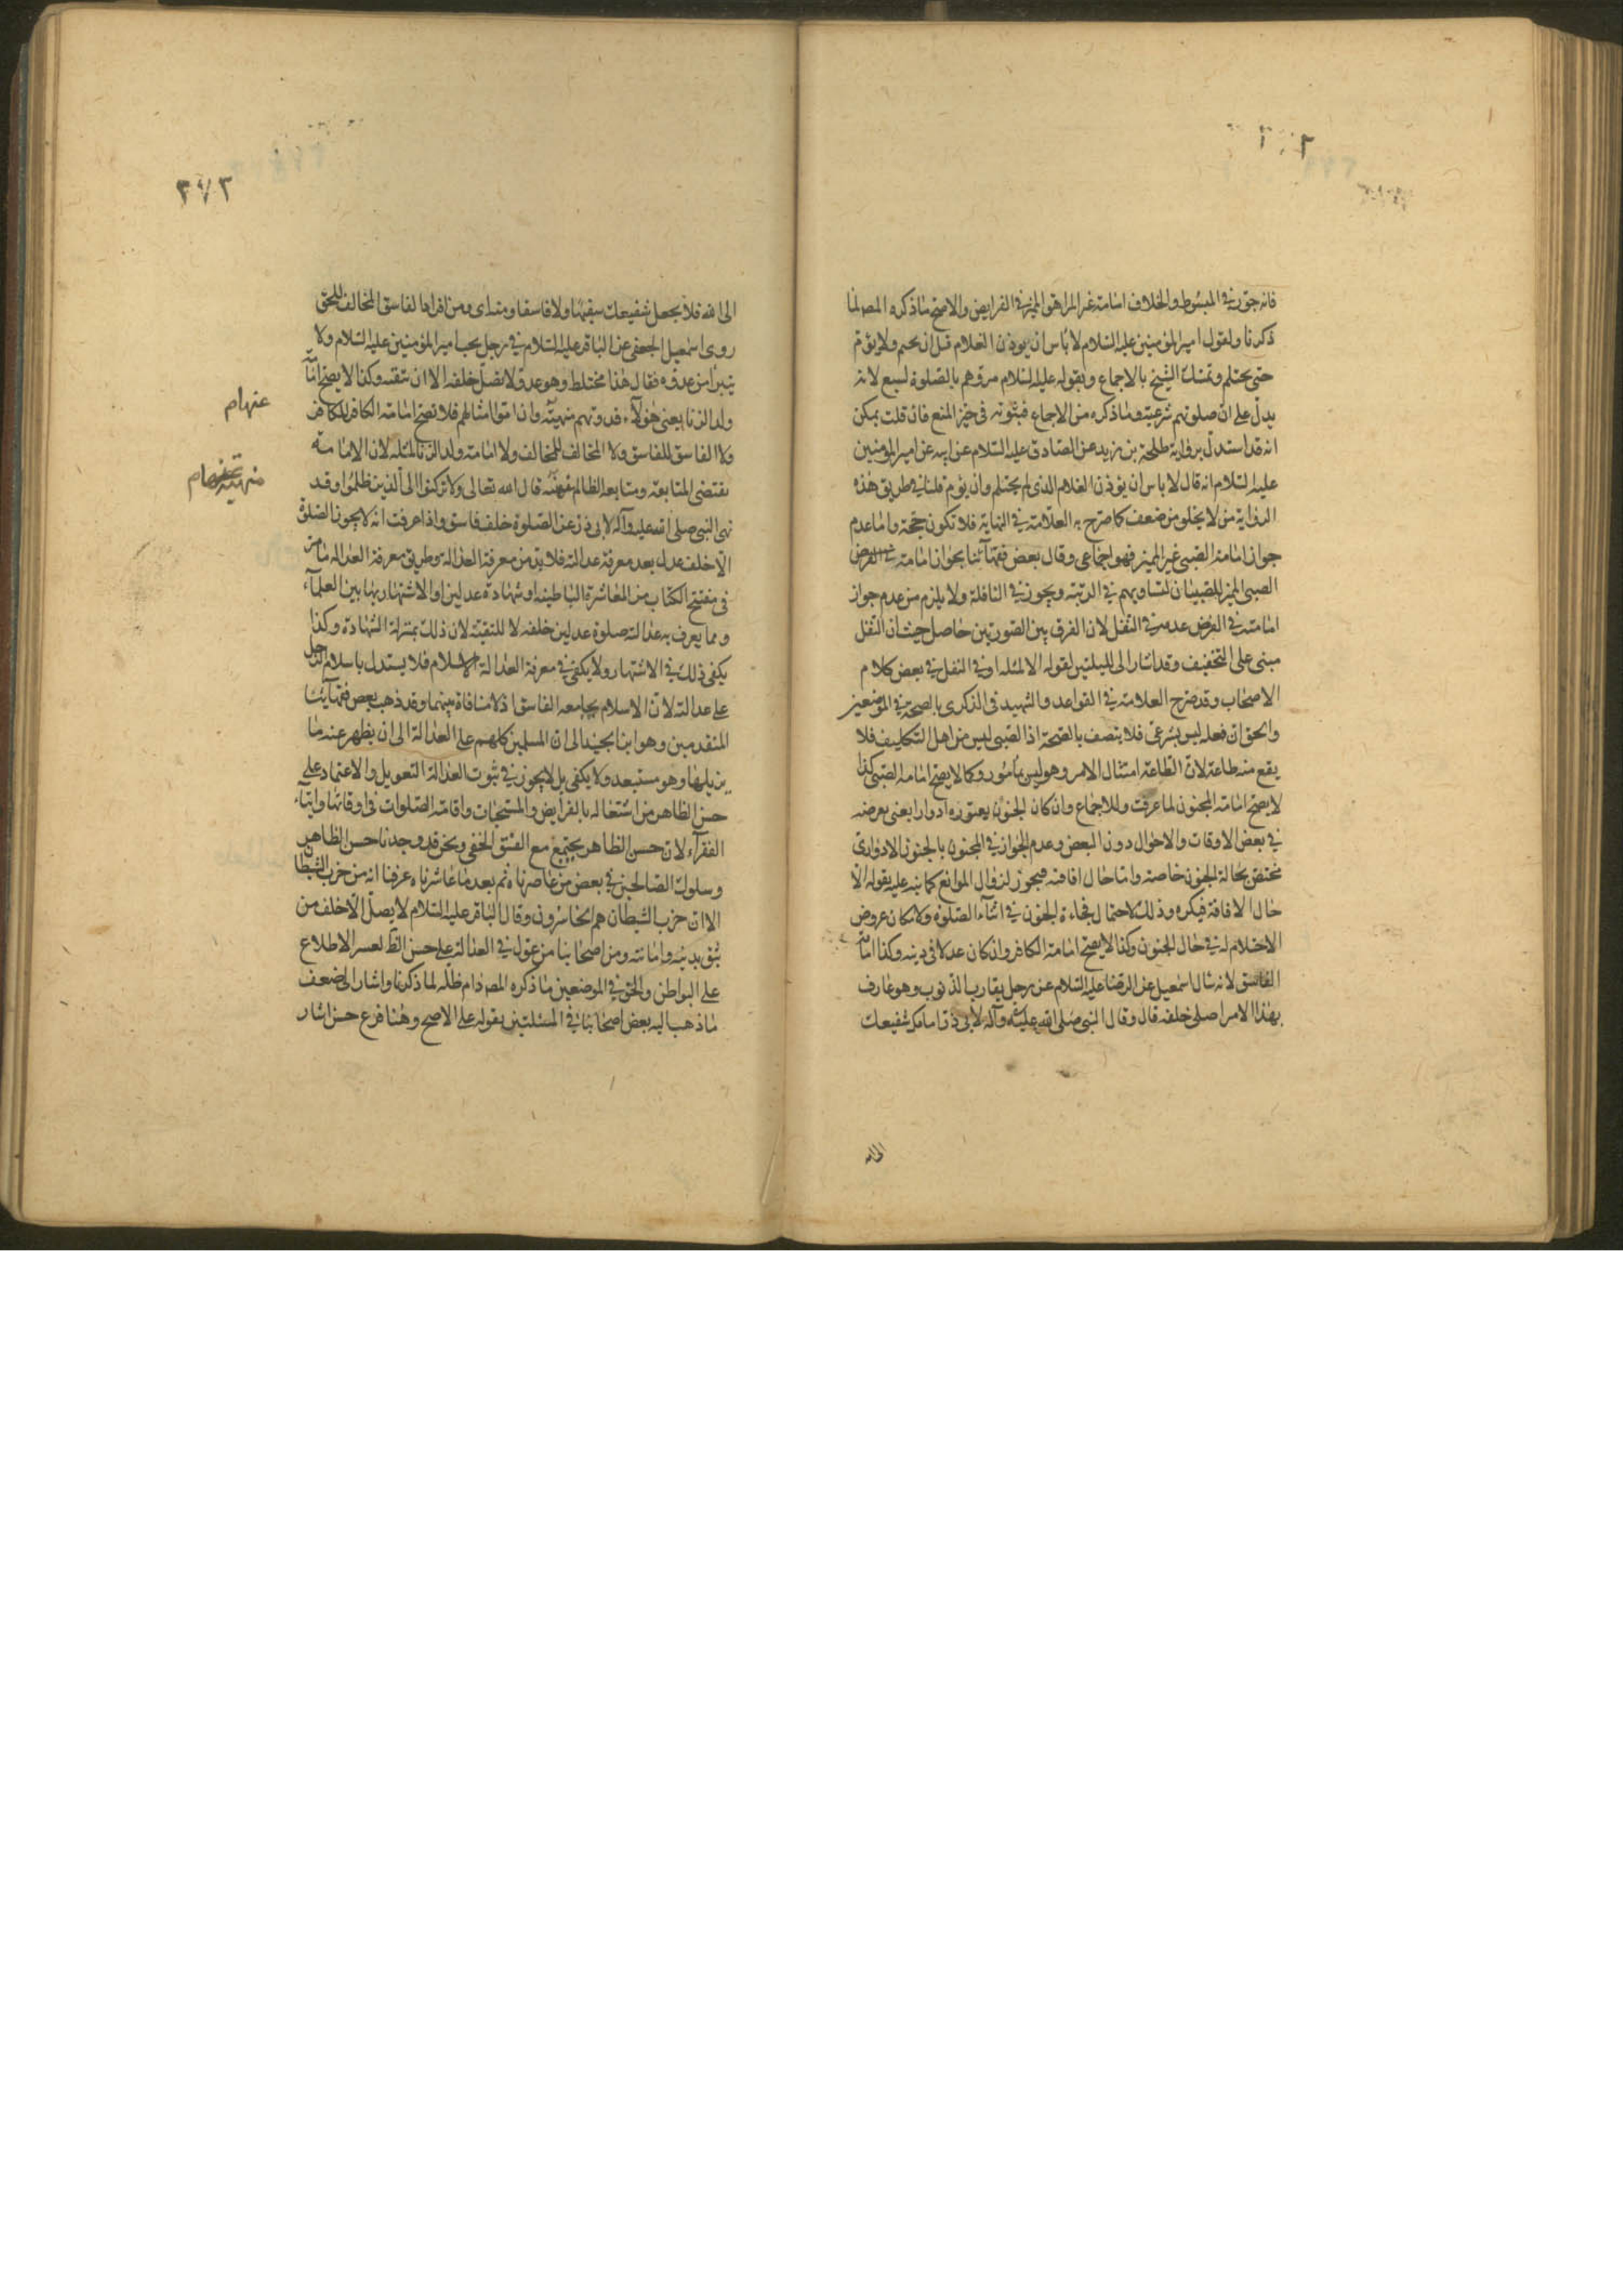 فانه جوز في المبسوط والخلاف امامة غير المراهق المميز في الفرايض والاصح ما ذكره المصـ لما
ذكرنا ولقول امير المؤمنين عليه السلام لا باس ان يوذن الغلام قبل ان يحتلم ولا يؤم
حتى يحتلم وتمسك الشيخ بالاجماع وبقوله عليه السلام مروهم بالصلوة لسبع لانه
يدل على ان صلوتهم شرعية وما ذكره من الاجماع فثبوته في حيز المنع فان قلت يمكن
انه قد استدل برواية طلحة بن زيد عن الصادق عليه السلام عن ابيه عن امير المؤمنين
عليه السلام انه قال لا باس ان يوذن الغلام الذي لم يحتلم وان يؤم قلنا في طريق هذه
الرواية من لا يخلو من ضعف كما صرح به العلامة في النهاية فلا تكون حجة واما عدم
جواز امامة الصبي غير المميز فهو اجماعي وقال بعض فقهائنا بجواز امامة في الفرض
الصبي المميز للصبيان لتساويهم في الرتبة ويجوز في النافلة ولا يلزم من عدم جواز
امامته في الفرض عدمه في النفل لان الفرق بين الصورتين حاصل حيث ان النفل
مبنى على التخفيف وقد اشار الى المسئلتين لقوله الا لمثله او في النفل في بعض كلام
الاصحاب وقد صرح العلامة في القواعد والشهيد في الذكرى بالصحة في الموضعين
والحق ان فعله ليس بشرعي فلا يتصف بالصحة اذ الصبي ليس من اهل التكليف فلا
يقع منه طاعة لان الطاعة امتثال الامر وهو ليس بمأمور وكما لا يصح امامة الصبي كذا
لا يصح امامة المجنون لما عرفت وللاجماع وان كان الجنون يعتوره ادوارا يعنى يعرضه
في بعض الاوقات والاحوال دون البعض وعدم الجواز في المجنون بالجنون الادوارى
مختص بحالة الجنون خاصة واما حال افاقته فيجوز لزوال الموانع كما نبه عليه بقوله الا
حال الافاقة فيكره وذلك لاحتمال فجاءة الجنون في اثناء الصلوة ولامكان عروض
الاحتلام له في حال الجنون وكذا لا يصح امامة الكافر وان كان عدلا في دينه وكذا امامة
الفاسق لانه سال اسمعيل عن الرضا عليه السلام عن رجل يقارب الذنوب وهو عارف
بهذا الامر اصلى خلفه قال لا وقال النبي صلى الله عليه وآله لابى ذر امامك شفيعك
الى الله
٢٧٢
الى الله فلا تجعل شفيعك سفيها ولا فاسقا ومن افراد الفاسق المخالف للحق
روى اسمعيل الجعفى عن الباقر عليه السلام في رجل يحب امير المؤمنين عليه السلام ولا
يتبرأ من عدوه فقال هذا مختلط وهو عدو لا تصل خلفه الا ان تتقيه وكذا لا يصح امامة
ولد الزنا يعنى هؤلاء قدوتهم منهية وان اموا امثالهم فلا تصح امامة الكافر للكافر
ولا الفاسق للفاسق ولا المخالف للمخالف ولا امامة ولد الزنا لمثله لان الامامة
تقتضى المتابعة ومتابعة الظالم منهية قال الله تعالى ولا تركنوا الى الذين ظلموا وقد
نهى النبي صلى الله عليه وآله لابى ذر عن الصلوة خلف فاسق واذا عرفت انه لا يجوز الصلوة
الا خلف عدل بعد معرفة عدالته فلا بد من معرفة العدالة وطريق معرفة العدالة ما مر
في مفتتح الكتاب من المعاشرة الباطنية او شهادة عدلين او الاشتهار بها بين العلماء
ومما يعرف به عدالته صلوة عدلين خلفه لا للتقية لان ذلك بمنزلة الشهادة وكذا
يكفى ذلك في الاشتهار ولا يكفى في معرفة العدالة الاسلام فلا يستدل باسلام الرجل
على عدالته لان الاسلام يجامعه الفاسق اذ لا منافاة بينهما وقد ذهب بعض فقهائنا
المتقدمين وهو ابن الجنيد الى ان المسلمين كلهم على العدالة الى ان يظهر عنه ما
يزيلها وهو مستبعد ولا يكفى بل لا يجوز في ثبوت العدالة التعويل والاعتماد على
حسن الظاهر من اشتغاله بالفرايض والمستحبات واقامة الصلوات في اوقاتها وايتاء
الفقراء لان حسن الظاهر يجتمع مع الفسق الخفى ونحن قد وجدنا حسن الظاهر
وسلوك الصالحين في بعض من عاصرناه ثم بعد ما عاشرناه عرفنا انه من حزب الشيطان
الا ان حزب الشيطان هم الخاسرون وقال الباقر عليه السلام لا يصل الا خلف من
تثق بدينه وامانته ومن اصحابنا من عول في العدالة على حسن الظ لعسر الاطلاع
على البواطن والحق في الموضعين ما ذكره المصـ دام ظله لما ذكرنا واشار الى ضعف
ما ذهب اليه بعض اصحابنا في المسئلتين بقوله على الاصح وهنا فرع حسن اشار
عنهام